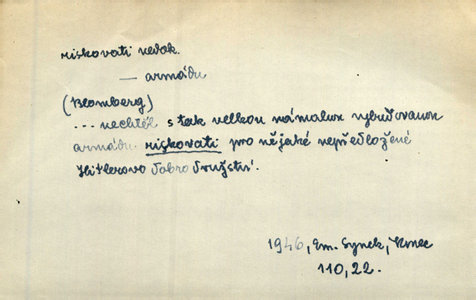 riskovati nedok.
— armádu
(Blomberg)
... nechtěl s tak velkou námahou vybudovanou
armádu riskovati pro nějaké nepředložené
Hitlerovo dobrodružství.
1946, Em. Synek, Konec
110, 22.